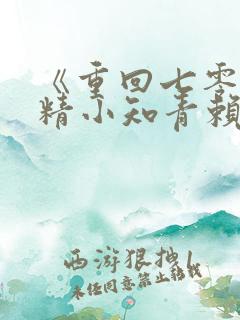 《重回七零
精小知青赖
西游狠拽
未经同意禁止转载